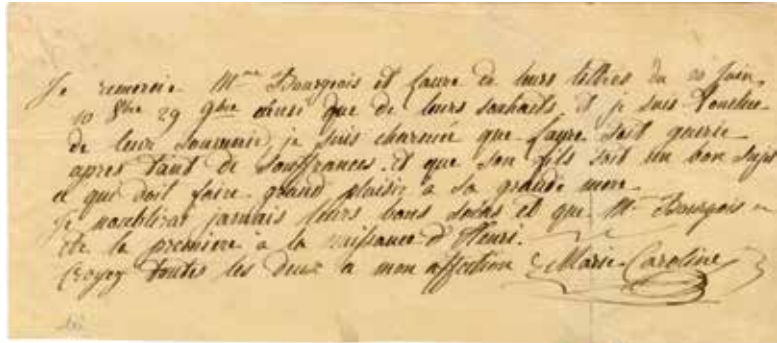 Je remercie Mme Bourgeois et faure de leurs lettres du 20 juin
10 8bre 29 9bre ainsi que de leurs souhaits et je suis touchee
de leur souvenir, je suis charmée que faure soit guerie
apres tant de souffrances. et que son fils soit un bon sujet
ce qui doit faire grand plaisir à sa grande mere
Je noublirai jamais leurs bons soins et que Me Bourgeois a
ete la premiere à la naissance d'Henri.
Croyez toutes les deux a mon affection Marie-Caroline